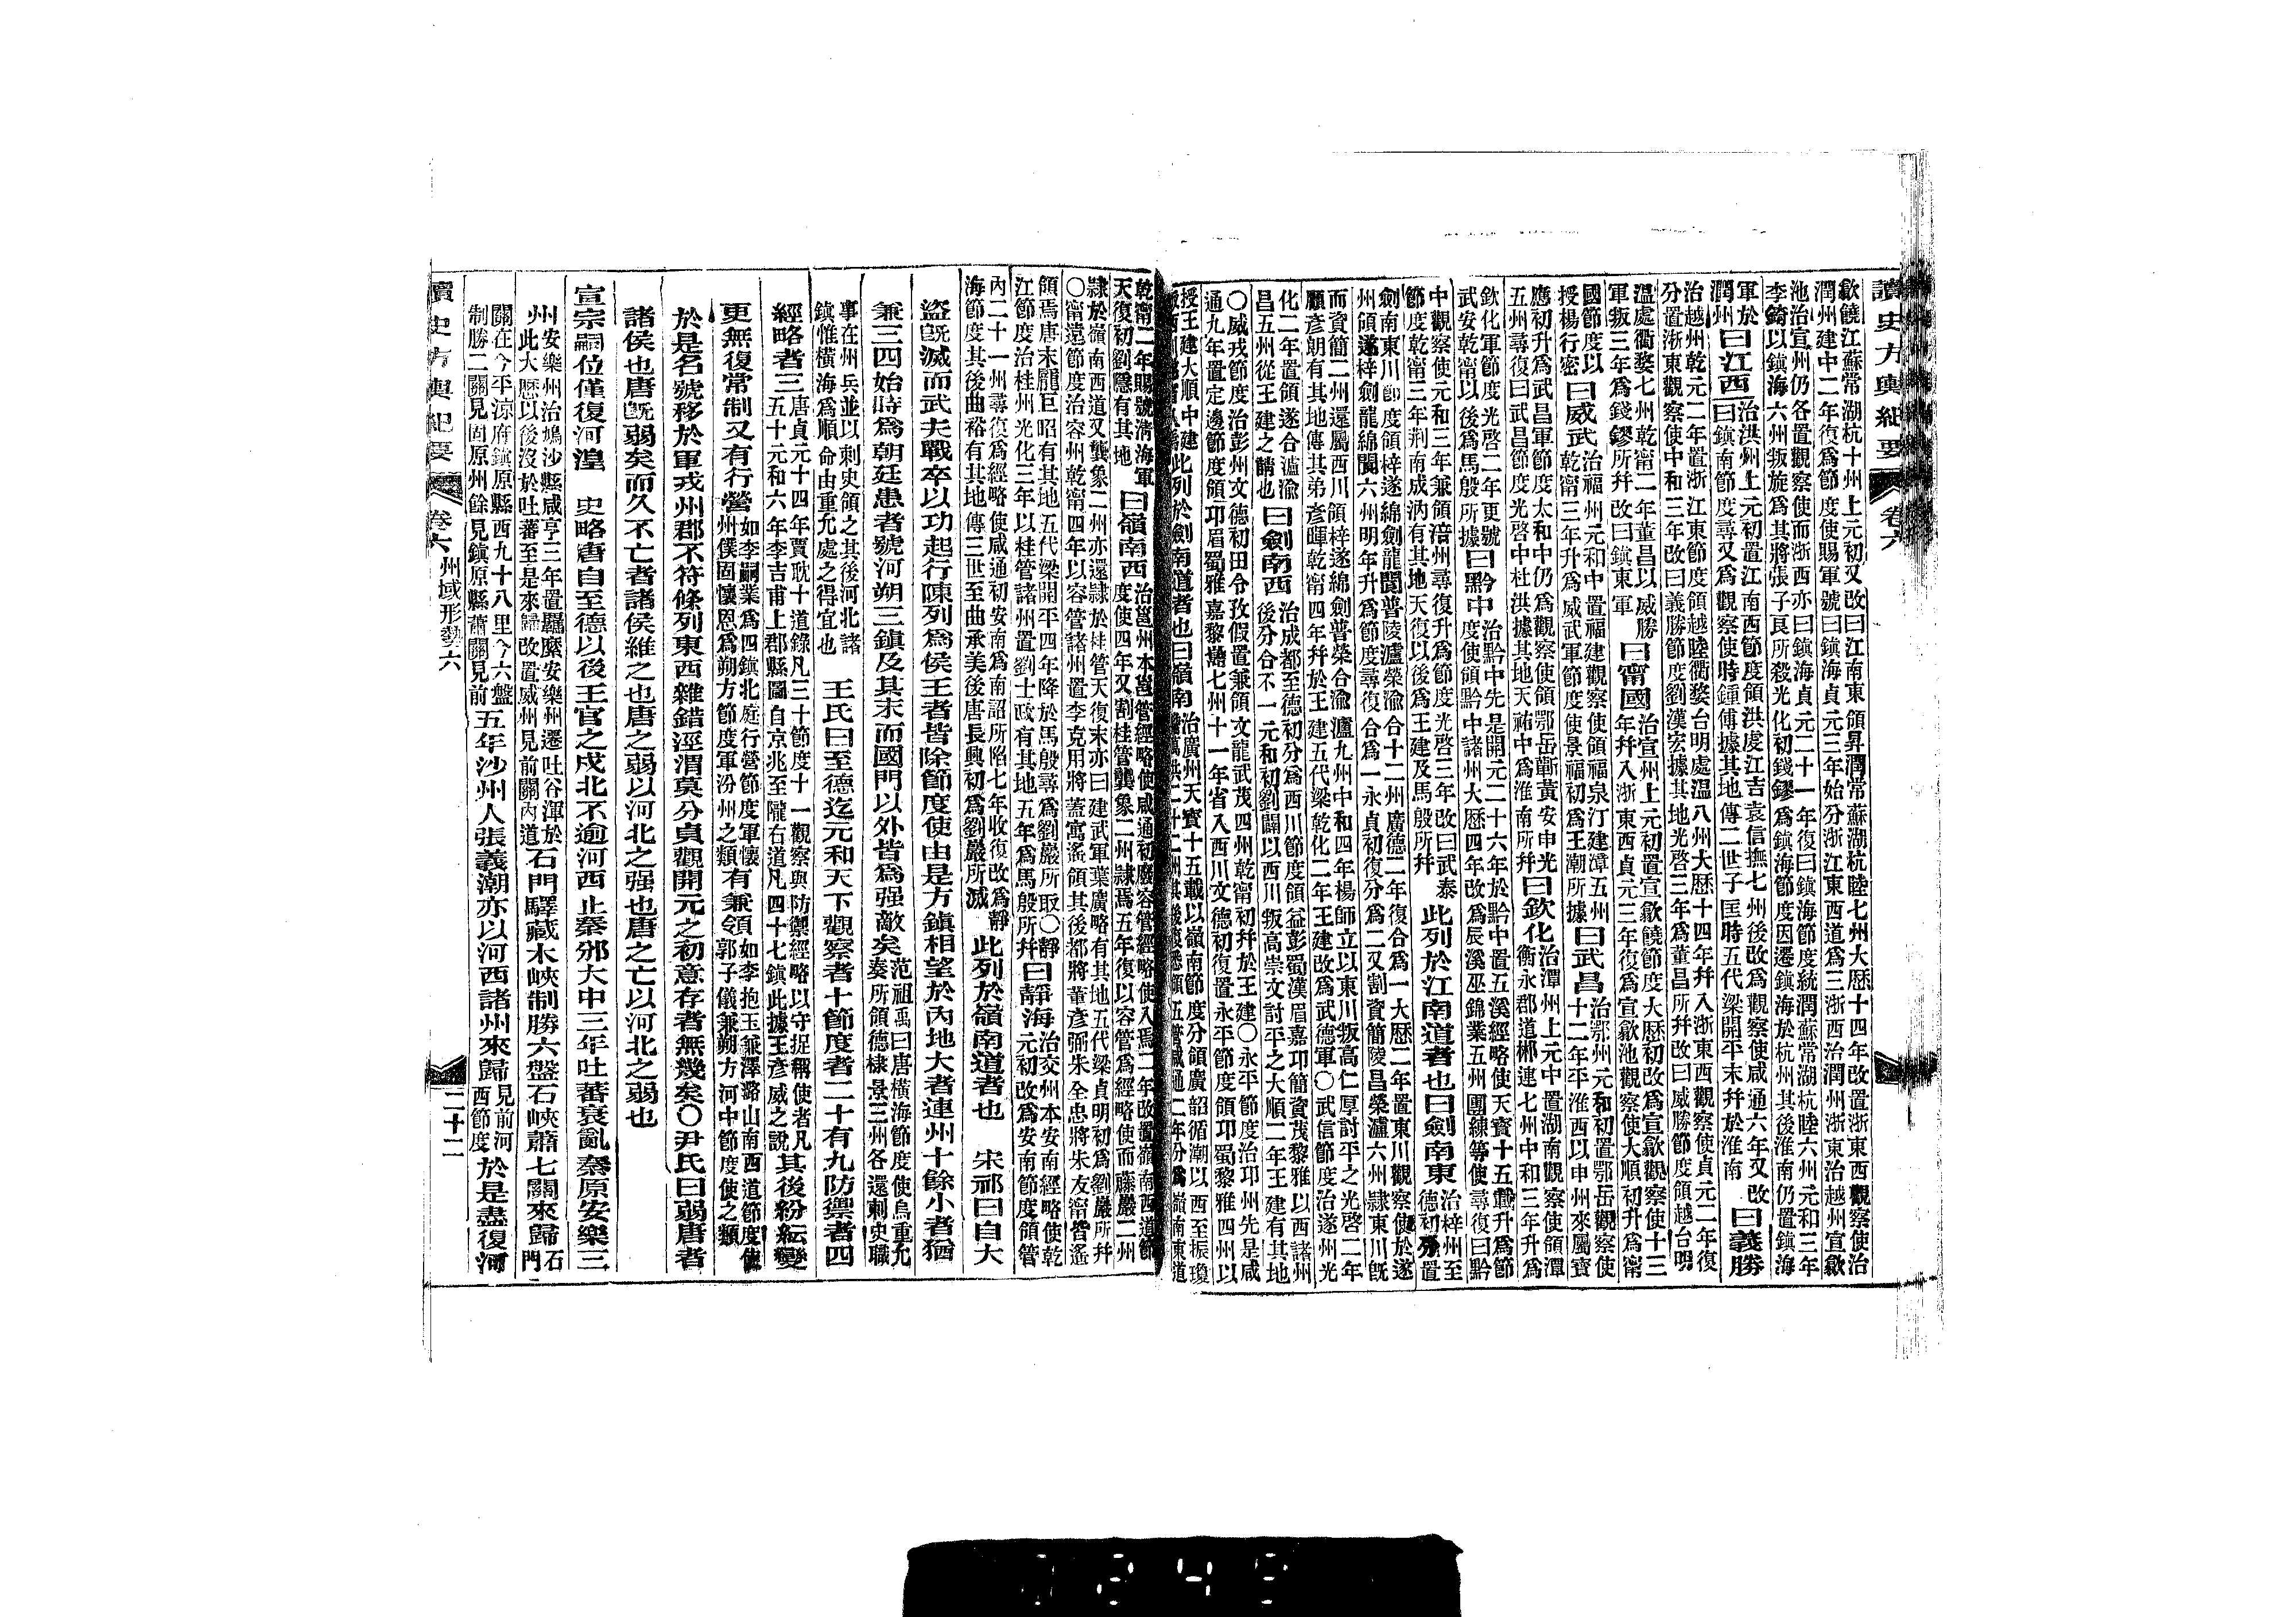 讀史方輿紀要 卷六
歙饒江蘇常湖杭十州上元初又改曰江南東領昇潤常蘇湖杭睦七州大歷十四年改置浙東西觀察使治
潤州建中二年復爲節度使賜軍號曰鎮海貞元三年始分浙江東西道爲三浙西治潤州浙東治越州宣歙
池治宣州仍各置觀察使而浙西亦曰鎮海貞元二十一年復曰鎮海節度統潤蘇常湖杭睦六州元和三年
李錡以鎮海六州叛旋爲其將張子良所殺光化初錢鏐爲鎮海節度因遷鎮海於杭州其後淮南仍置鎮海
軍於
潤州
曰江西
治洪州上元初置江南西節度領洪虔江吉袁信撫七州後改爲觀察使咸通六年又改
曰鎮南節度尋又爲觀察使時鍾傅據其地傳二世子匡時五代梁開平末幷於淮南
曰義勝
治越州乾元二年置浙江東節度領越睦衢婺台明處溫八州大歷十四年幷入浙東西觀察使貞元二年復
分置浙東觀察使中和三年改曰義勝節度劉漢宏據其地光啓三年爲董昌所幷改曰威勝節度領越台明
溫處衢婺七州乾甯二年董昌以威勝
軍叛三年爲錢鏐所幷改曰鎮東軍
曰甯國
治宣州上元初置宣歙饒節度大歷初改爲宣歙觀察使十三
年幷入浙東西貞元三年復爲宣歙池觀察使大順初升爲甯
國節度以
授楊行密
曰威武
治福州元和中置福建觀察使領福泉汀建漳五州
乾甯三年升爲威武軍節度使景福初爲王潮所據
曰武昌
治鄂州元和初置鄂岳觀察使
十二年平淮西以申州來屬寶
應初升爲武昌軍節度太和中仍爲觀察使領鄂岳蘄黃安申光
五州尋復曰武昌節度光啓中杜洪據其地天祐中爲淮南所幷
曰欽化
治潭州上元中置湖南觀察使領潭
衡永郡道郴連七州中和三年升爲
欽化軍節度光啓二年更號
武安乾甯以後爲馬殷所據
曰黔中
治黔中先是開元二十六年於黔中置五溪經略使天寶十五載升爲節
度使領黔中諸州大歷四年改爲辰溪巫錦業五州團練等使尋復曰黔
中觀察使元和二年兼領涪州尋復升爲節度光啓三年改曰武泰
節度乾甯三年荆南成汭有其地天復以後爲王建及馬殷所幷
此列於江南道者也曰劍南東
治梓州至
德初分置
劍南東川節度領梓遂綿劍龍閬普陵瀘榮渝合十二州廣德二年復合爲一大歷二年置東川觀察使於遂
州領遂梓劍龍綿閬六州明年升爲節度尋復合爲一永貞初復分爲二又割資簡陵昌榮瀘六州隸東川旣
而資簡二州還屬西川領梓遂綿劍普榮合渝瀘九州中和四年楊師立以東川叛高仁厚討平之光啓二年
顧彥朗有其地傳其弟彥暉乾甯四年幷於王建五代梁乾化二年王建改爲武德軍○武信節度治遂州光
化二年置領遂合瀘渝
昌五州從王建之請也
曰劍南西
治成都至德初分爲西川節度領益彭蜀漢眉嘉卭簡資茂黎雅以西諸州
後分合不一元和初劉闢以西川叛高崇文討平之大順二年王建有其地
○威戎節度治彭州文德初田令孜假置兼領文龍武茂四州乾甯初幷於王建○永平節度治卭州先是咸
通九年置定邊節度領卭眉蜀雅嘉黎巂七州十一年省入西川文德初復置永平節度領卭蜀黎雅四州以
授王建大順中建
此列於劍南道者也曰嶺南
治廣州天寶十五載以嶺南節度分領廣韶循潮以西至振瓊
乾甯二年賜號淸海軍
天復初劉隱有其地
曰嶺南西
治邕州本邕管經略使咸通初廢容管經略使入焉二年改置嶺南西道節
度使四年又割桂管龔象二州隸焉五年復以容管爲經略使而藤巖二州
隸於嶺南西道又龔象二州亦還隸於桂管天復末亦曰建武軍葉廣略有其地五代梁貞明初爲劉巖所幷
○甯遠節度治容州乾甯四年以容管諸州置李克用將蓋寓遙領其後都將董彥弼朱全忠將朱友甯皆遙
領焉唐末龐巨昭有其地五代梁開平四年降於馬殷尋爲劉巖所取○靜
江節度治桂州光化三年以桂管諸州置劉士政有其地五年爲馬殷所幷
曰靜海
治交州本安南經略使乾
元初改爲安南節度領管
內二十一州尋復爲經略使咸通初安南爲南詔所陷七年收復改爲靜
海節度其後曲裕有其地傳三世至曲承美後唐長興初爲劉巖所滅
此列於嶺南道者也　宋祁曰自大
盜旣滅而武夫戰卒以功起行陳列爲侯王者皆除節度使由是方鎮相望於內地大者連州十餘小者猶
兼三四始時爲朝廷患者號河朔三鎮及其末而國門以外皆爲强敵矣
范祖禹曰唐橫海節度使烏重允
奏所領德棣景三州各還刺史職
事在州兵並以刺史領之其後河北諸
鎮惟橫海爲順命由重允處之得宜也
王氏曰至德迄元和天下觀察者十節度者二十有九防禦者四
經略者三
唐貞元十四年賈耽十道錄凡三十節度十一觀察與防禦經略以守捉稱使者凡
五十元和六年李吉甫上郡縣圖自京兆至隴右道凡四十七鎮此據王彥威之說
其後紛紜變
更無復常制又有行營
如李嗣業爲四鎮北庭行營節度軍懷
州僕固懷恩爲朔方節度軍汾州之類
有兼領
如李抱玉兼澤潞山南西道節度使
令郭子儀兼朔方河中節度使之類
於是名號移於軍戎州郡不符條列東西雜錯涇渭莫分貞觀開元之初意存者無幾矣○尹氏曰弱唐者
諸侯也唐旣弱矣而久不亡者諸侯維之也唐之弱以河北之强也唐之亡以河北之弱也
宣宗嗣位僅復河湟　史略唐自至德以後王官之戍北不逾河西止秦邠大中三年吐蕃衰亂秦原安樂三
州
安樂州治鳴沙縣咸亨三年置羈縻安樂州遷吐谷渾於
此大歷以後沒於吐蕃至是來歸改置威州見前關內道
石門驛藏木峽制勝六盤石峽蕭七關來歸
石
門
關在今平涼府鎮原縣西九十八里今六盤
制勝二關見固原州餘見鎮原縣蕭關見前
五年沙州人張義潮亦以河西諸州來歸
見前河
西節度
於是盡復河
讀史方輿紀要 卷六 州域形勢六
二十二